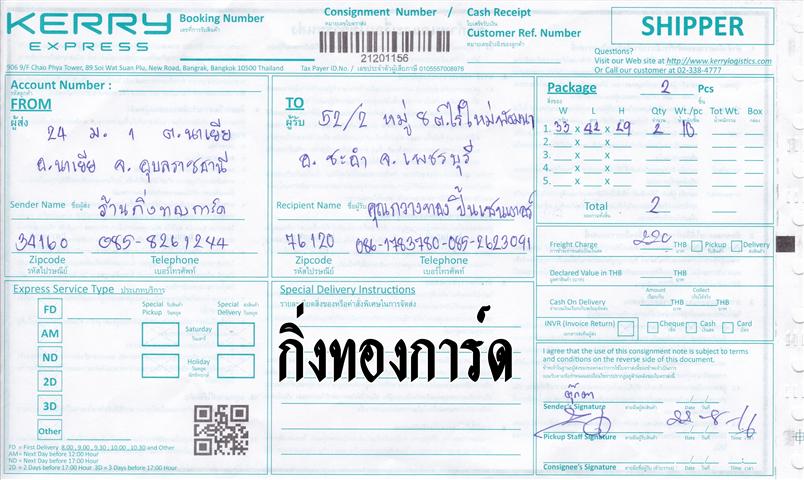 KERRY
EXPRESS
Booking Number
เลขที่การรับสินค้า
Consignment Number / Cash Receipt
หมายเลขใบตราส่ง / ใบเสร็จรับเงิน
21201156
Customer Ref. Number
หมายเลขอ้างอิงของลูกค้า
SHIPPER
Questions?
Visit our Web site at http://www.kerrylogistics.com
Or Call our customer at 02-338-4777
906 9/F Chao Phya Tower, 89 Soi Wat Suan Plu, New Road, Bangrak, Bangkok 10500 Thailand
Tax Payer ID.No. / เลขประจำตัวผู้เสียภาษี 0105557008976
Account Number :
รหัสลูกค้า
FROM
ผู้ส่ง
24 ม. 1 ต.นาเยีย
อ.นาเยีย จ. อุบลราชธานี
Sender Name ชื่อผู้ส่ง ร้านกิ่งทองการ์ด
34160 085-8261244
Zipcode Telephone
รหัสไปรษณีย์ เบอร์โทรศัพท์
TO
ผู้รับ
52/2 หมู่ 8 ต.ไร่ใหม่พัฒนา
อ. ชะอำ จ. เพชรบุรี
Recipient Name ชื่อผู้รับ คุณกวางทอง ปิ้นเซนเตอร์
76120 086-1783780-085-2623091
Zipcode Telephone
รหัสไปรษณีย์ เบอร์โทรศัพท์
Package 2 Pcs
สิ่งของ ชิ้น
W L H Qty Wt./pc Tot Wt. Box
1. 33 x 42 x 29 2 10
2. x x
3. x x
4. x x
5. x x
Total 2
Freight Charge 220 THB Pickup Delivery
Declared Value in THB THB
Amount Collect
Cash On Delivery THB THB
INVR (Invoice Return) Cheque Cash Card
I agree that the use of this consignment note is subject to terms
and conditions on the reverse side of this document.
ตุ๊กตา
Sender's Signature Date วันที่
22-8-16
Pickup Staff Signature Date วันที่ Time เวลา
Consignee's Signature Date วันที่ Time เวลา
Express Service Type ประเภทบริการ
FD
AM
ND
2D
3D
Other
Special Pickup
Special Delivery
Saturday
วันเสาร์
Holiday
วันหยุด
FD = First Delivery 8.00 , 9.00 , 9.30 , 10.00 , 10.30 and Other
AM= Next Day before 12:00 Hour
ND= Next Day before 17:00 Hour
2D = 2 Days before 17:00 Hour 3D = 3 Days before 17:00 Hour
Special Delivery Instructions
รายละเอียดสิ่งของหรือคำสั่งพิเศษในการจัดส่ง
กิ่งทองการ์ด